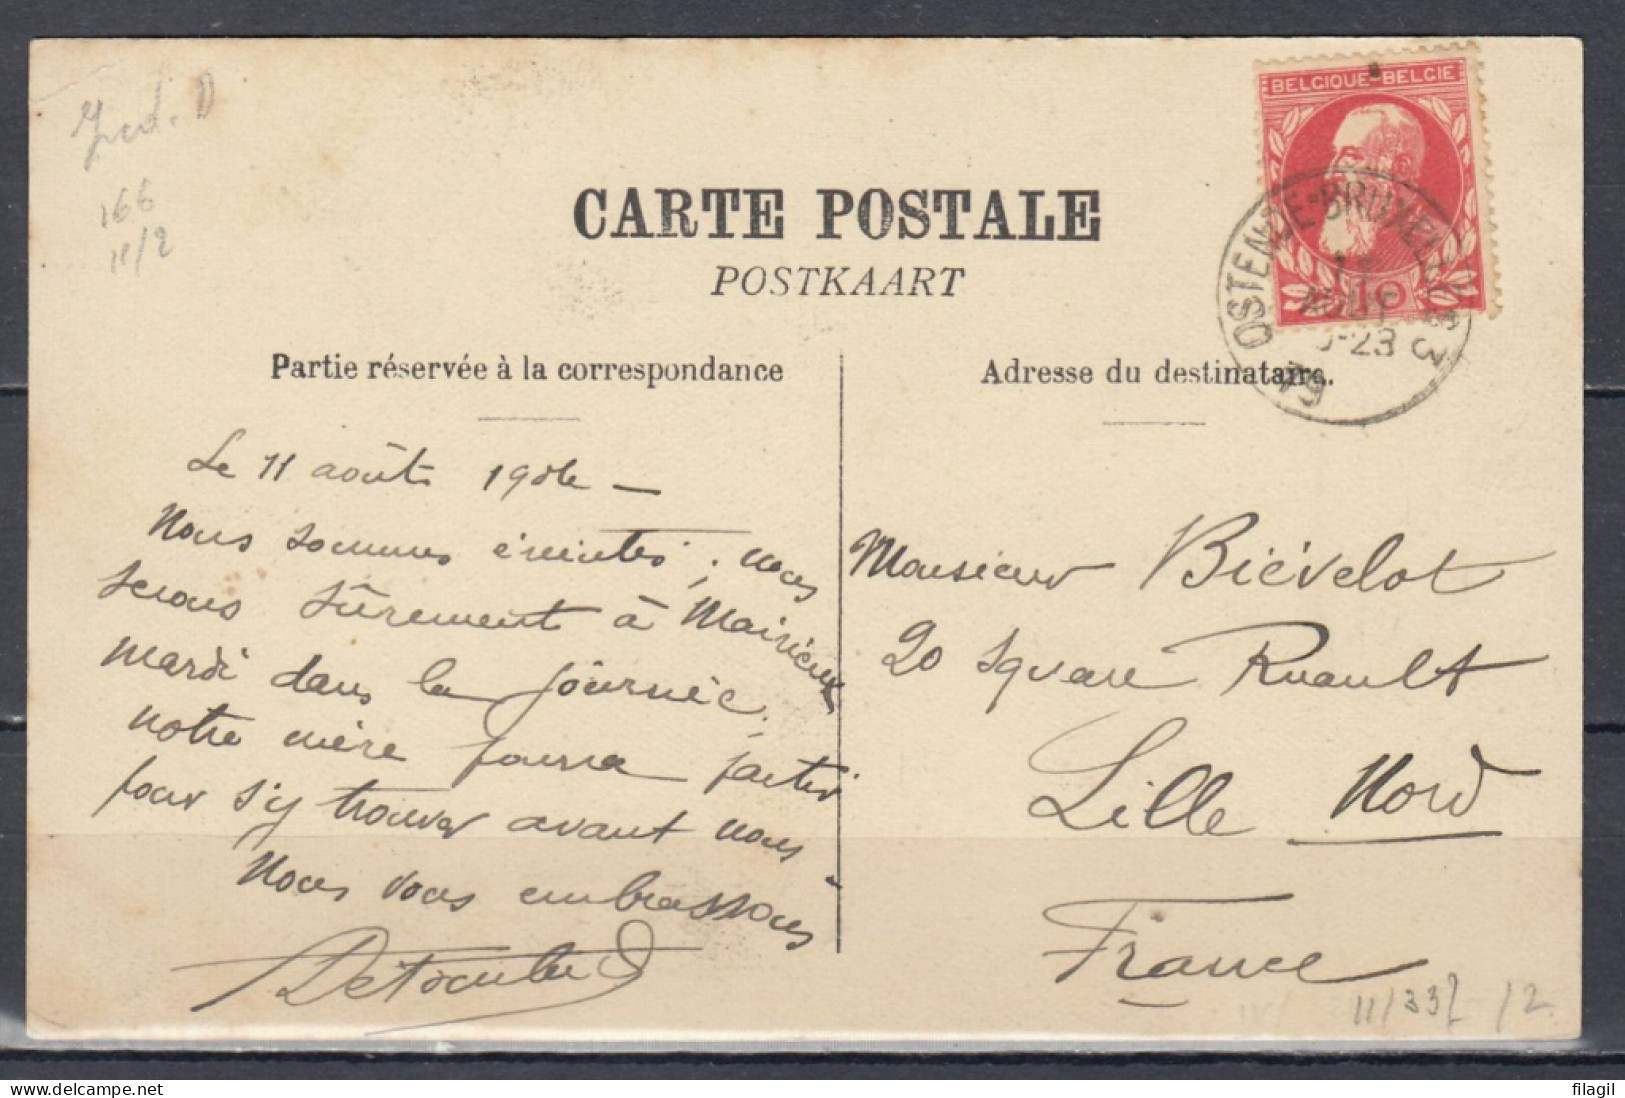 166
11/2
BELGIQUE-BELGIE
OSTENDE-BRUXELLES 3
AOUT
-23
09
10
CARTE POSTALE
POSTKAART
Partie réservée à la correspondance
Adresse du destinataire.
Le 11 août
Nous sommes éreintés ; nous
serons sûrement à Mairieux
mardi dans la journée.
notre mère pourra partir
pour s'y trouver avant nous
Nous vous embrassons
Monsieur Biévelot
20 Square Ruault
Lille Nord
France
11/332 /2
filagil